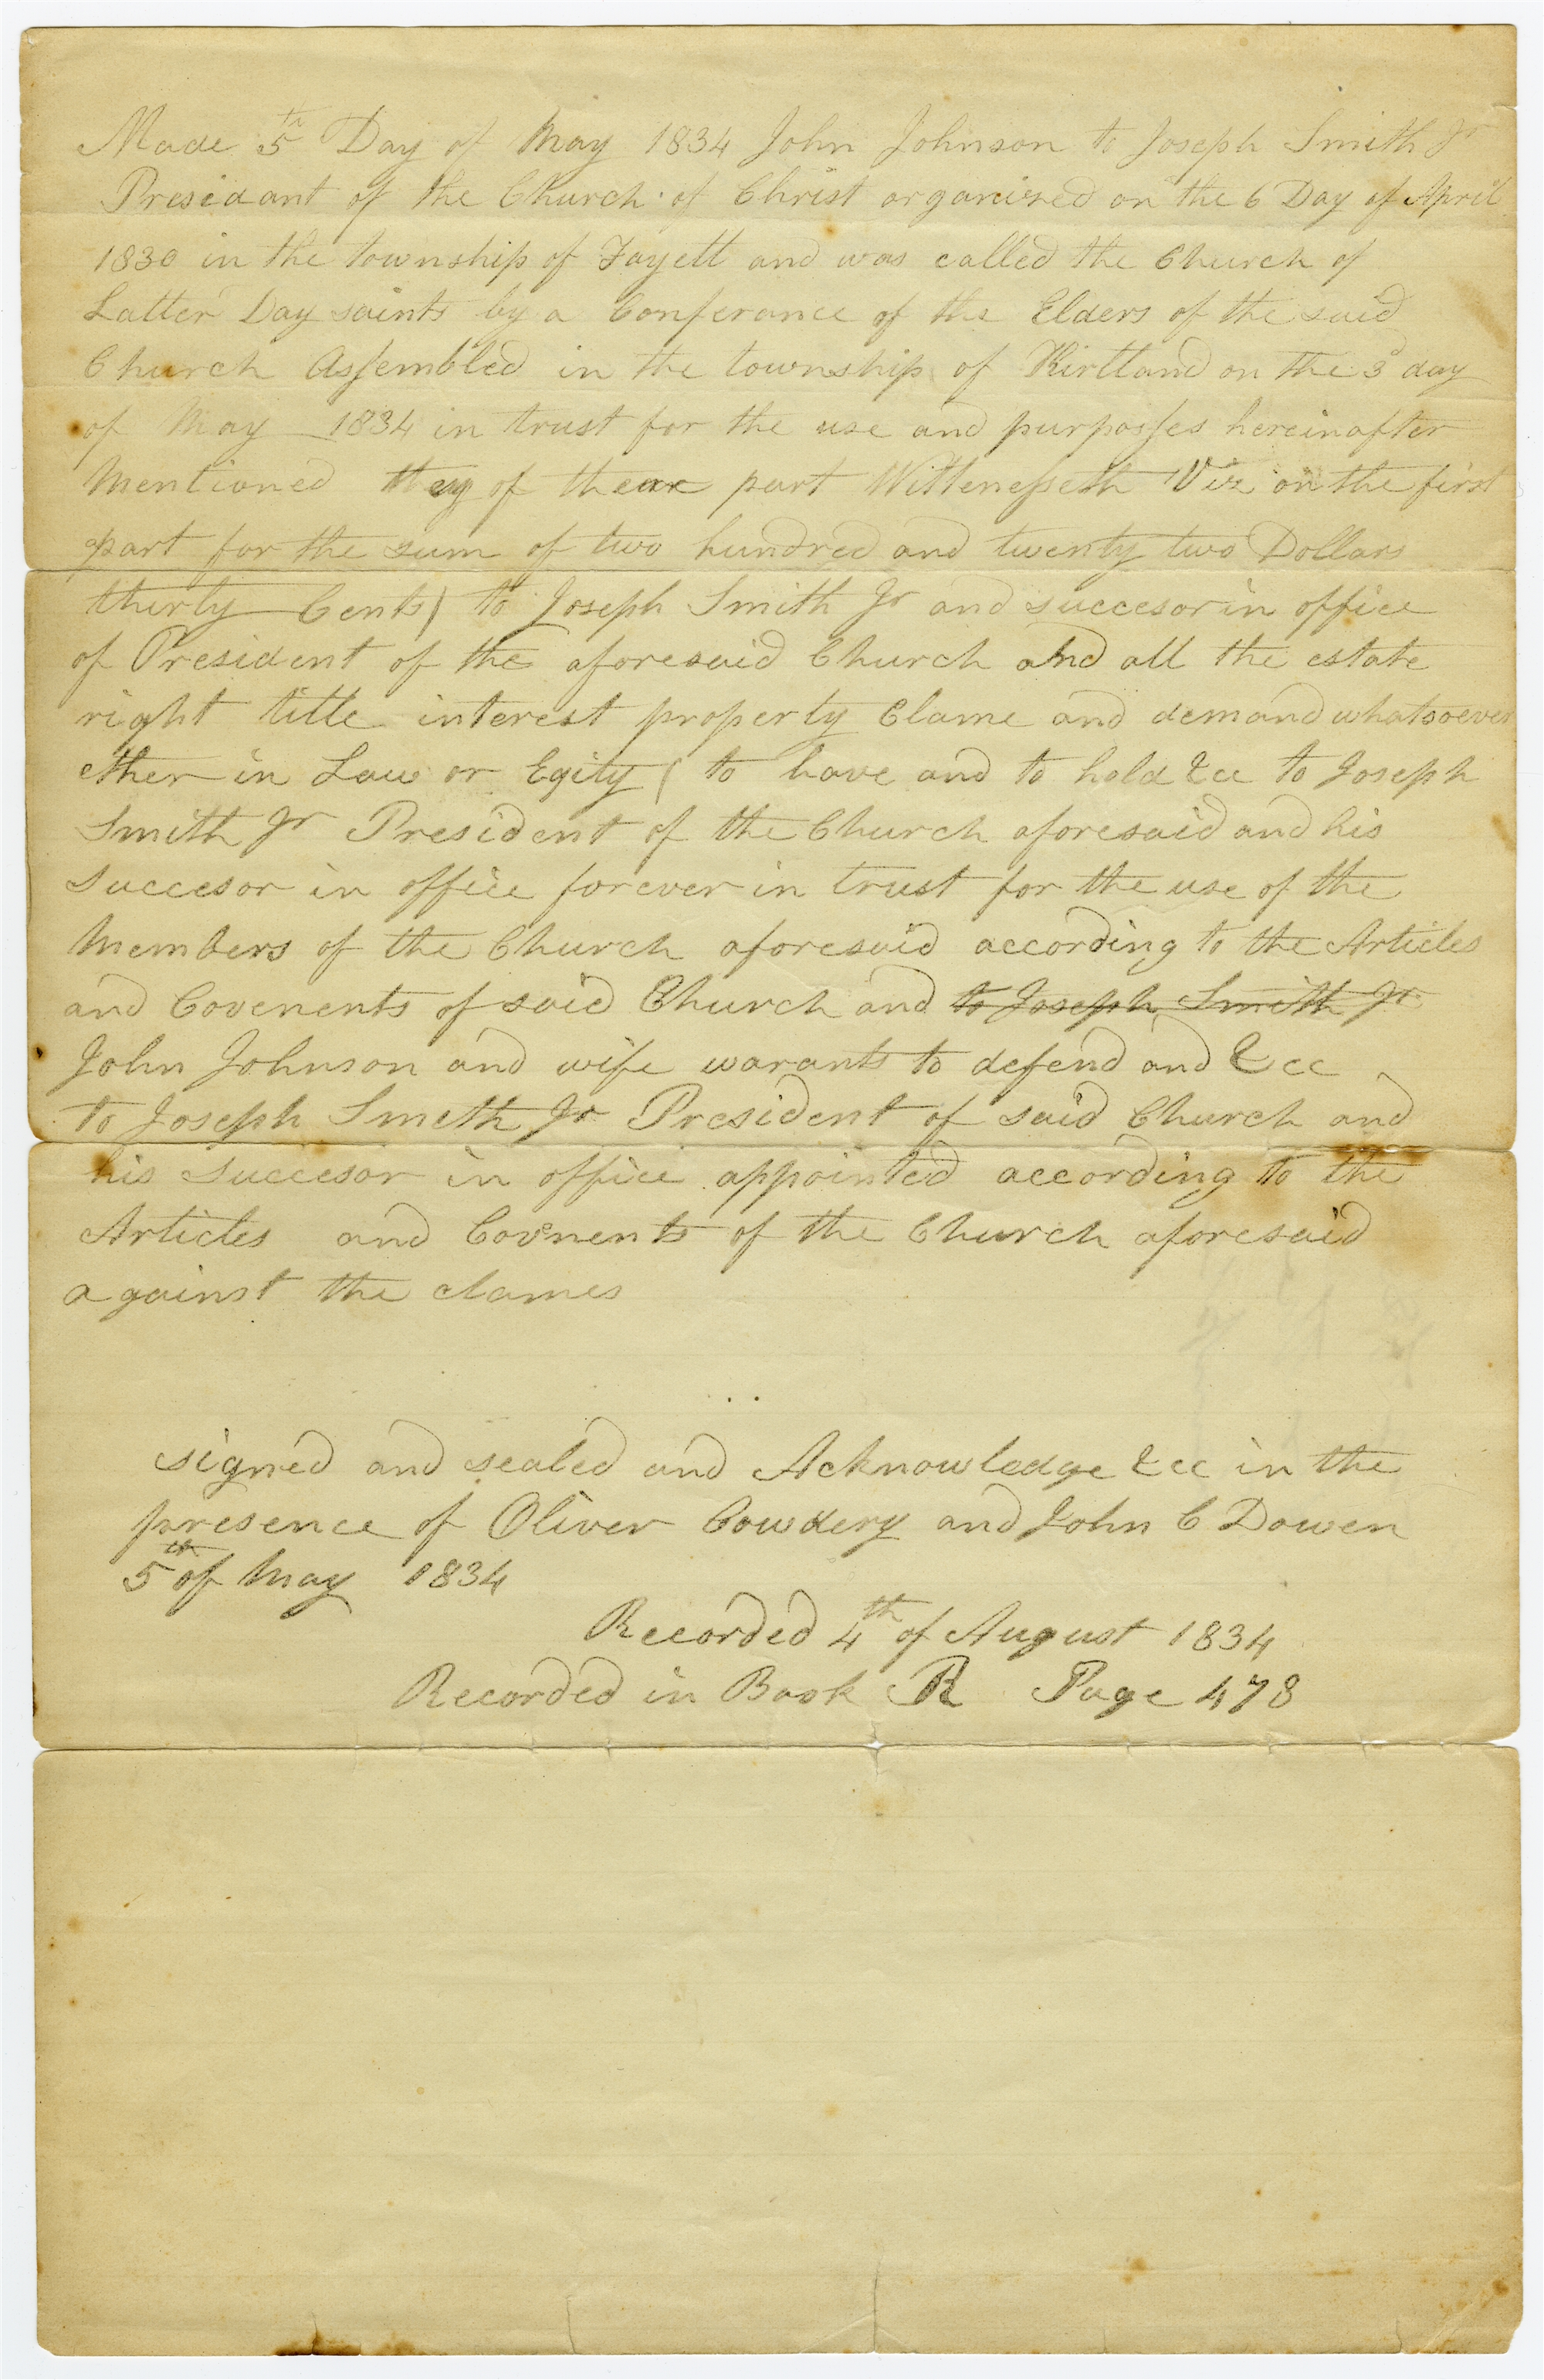 Made 5th Day of May 1834 John Johnson to Joseph Smith Jr
Presidant of the Church of Christ organized on the 6 Day of April
1830 in the township of Fayett and was called the Church of
Latter Day saints by a Conferance of the Elders of the said
Church Assembled in the township of Kirtland on the 3d day
of May 1834 in trust for the use and purposses hereinafter
Mentioned they of thear part Wittenesseth Viz on the first
part for the sum of two hundred and twenty two Dollars
thirty Cents) to Joseph Smith Jr and succesor in office
of President of the aforesaid Church and all the estate
right title interest property Clame and demand whatsoever
ether in Law or Eqity ( to have and to hold &cc to Joseph
Smith Jr President of the Church aforesaid and his
succesor in office forever in trust for the use of the
Members of the Church aforesaid according to the Articles
and Covenents of said Church and to Joseph Smith Jr
John Johnson and wife warants to defend and &cc
to Joseph Smeth Jr President of said Church and
his succesor in office appointed according to the
Articles and Covenents of the Church aforesaid
against the clames
signed and sealed and Acknowledge &cc in the
presence of Oliver Cowdery and John C Dowen
5th of May 1834
Recorded 4th of August 1834
Recorded in Book R Page 478